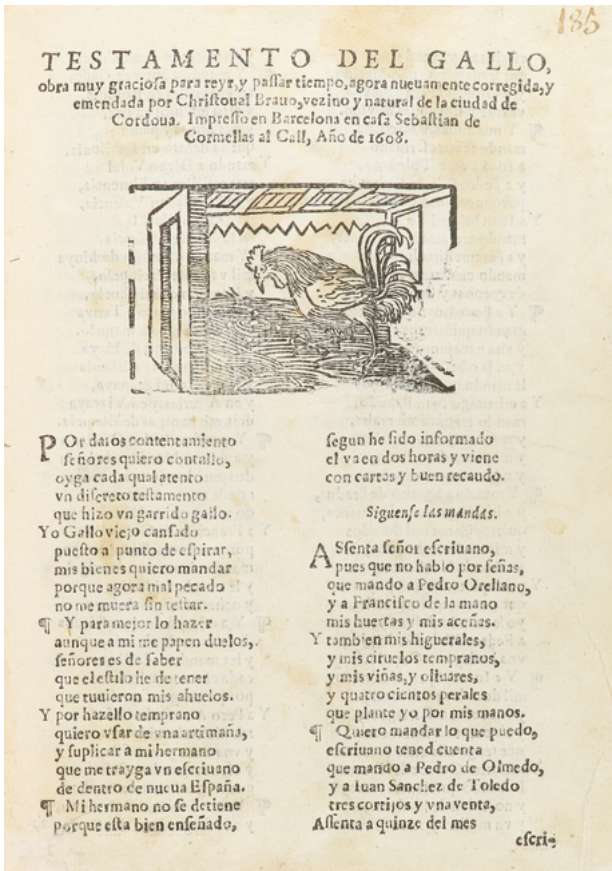 185
TESTAMENTO DEL GALLO,
obra muy graciosa para reyr, y passar tiempo, agora nueuamente corregida, y
emendada por Christoual Brauo, vezino y natural de la ciudad de
Cordoua. Impresso en Barcelona en casa Sebastian de
Cormellas al Call, Año de 1608.
POr daros contentamiento
señores quiero contallo,
oyga cada qual atento
vn discreto testamento
que hizo vn garrido gallo.
Yo Gallo viejo cansado
puesto a punto de espirar,
mis bienes quiero mandar
porque agora mal pecado
no me muera sin testar.
¶ Y para mejor lo hazer
aunque a mi me papen duelos,
señores es de saber
que el estilo he de tener
que tuuieron mis ahuelos.
Y por hazello temprano
quiero vsar de vna artimaña,
y suplicar a mi hermano
que me trayga vn escriuano
de dentro de nueua España.
¶ Mi hermano no se detiene
porque esta bien enseñado,
segun he sido informado
el va en dos horas y viene
con cartas y buen recaudo.
Siguense las mandas.
ASsenta señor escriuano,
pues que no hablo por señas,
que mando a Pedro Orellano,
y a Francisco de la mano
mis huertas y mis aceñas.
Y tambien mis higuerales,
y mis ciruelos tempranos,
y mis viñas, y oliuares,
y quatrocientos perales
que plante yo por mis manos.
¶ Quiero mandar lo que puedo,
escriuano tened cuenta
que mando a Pedro de Olmedo,
y a Iuan Sanchez de Toledo
tres cortijos y vna venta,
Assenta a quinze del mes
escri-